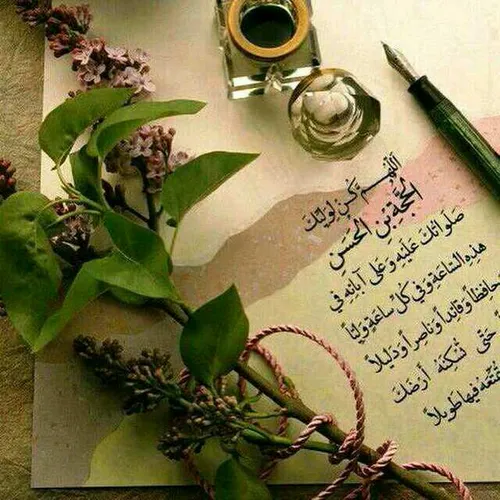 اَللّهُمَّ كُنْ لِوَلِيِّكَ
الْحُجَّةِ بْنِ الْحَسَنِ
صَلَواتُكَ عَلَيْهِ وَ عَلى آبائِهِ في
هذِهِ السّاعَةِ وَ في كُلِّ ساعَةٍ وَلِيّاً
حافِظاً وَ قائِداً وَ ناصِراً وَ دَليلاً
حَتّى تُسْكِنَهُ أَرْضَكَ
تُمَتِّعَهُ فيها طَويلاً